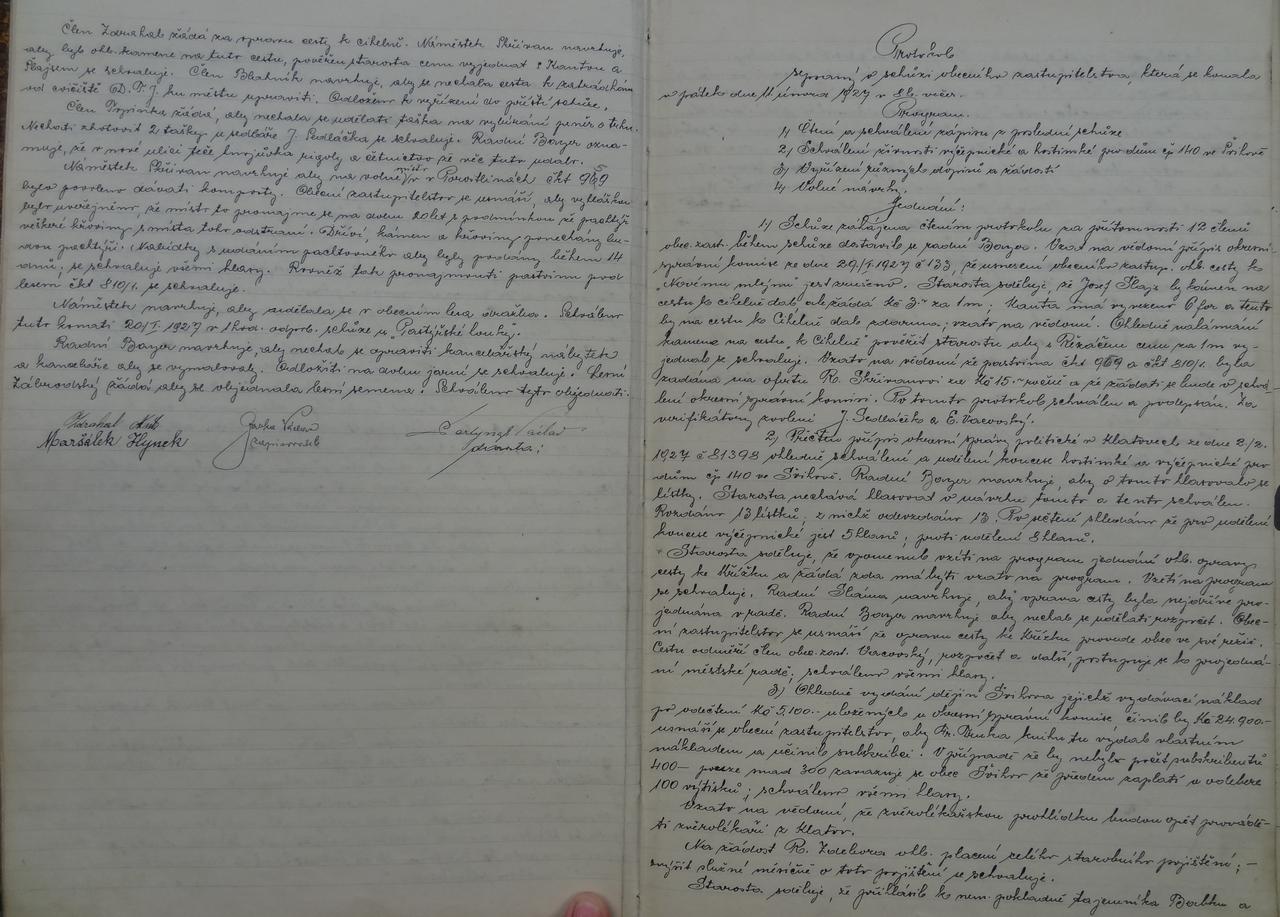 Člen Zdrahal žádá za opravu cesty k cihelně. Náměstek Skřivan navrhuje,
aby bylo ohl. kamene na tuto cestu, pověřen starosta cenu vyjednat s Kantou a
Šlajsem se schvaluje. Člen Blahník navrhuje, aby se nechala cesta k zahrádkám
od cvičiště D.T.J. ku městu upraviti. Odloženo k vyřízení do příští schůze.
Člen Trpinka žádá, aby nechala se udělati taška na vybírání peněz o trhu.
Nechati zhotovit 2 tašky u sedláře J. Sedláčka se schvaluje. Radní Bayer ozna-
muje, že v nové ulici teče hnojůvka rigoly a četnictvo že věc tuto udalo.
Náměstek Skřivan navrhuje aby na volné místo v Porostlinách čkt 969
bylo povoleno dávati komposty. Obecní zastupitelstvo se usnáší, aby vyhláškou
bylo uveřejněno, že místo to pronajme se na dobu 20 let s podmínkou že pachtýř
veškeré křoviny s místa toho odstraní. Dříví, kámen a křoviny ponechány bu-
dou pachtýři. Nabídky s udáním pachtovného aby byly podány během 14
dnů; se schvaluje všemi hlasy. Rovněž tak pronajmouti pastvinu pod
lesem čkt 810/1. se schvaluje.
Náměstek navrhuje, aby udělala se v obecním lese dražba. Schváleno
tuto konati 20/I. 1927 v 1 hod. odpol. schůze u "Pastýřské louky".
Radní Bayer navrhuje, aby nechal se opraviti kancelářský nábytek
a kanceláře aby se vymalovaly. Odložiti na dobu jarní se schvaluje. Lesní
Zábrodský žádá aby se objednala lesní semena. Schváleno tyto objednati.
Zdrahal Ant.
Maršálek Hynek
Václav
zapisovatel
Václav
starosta:
Protokol
sepsaný o schůzi obecního zastupitelstva, která se konala
v pátek dne 11 února 1927 v 8 h. večer.
Program.
1) Čtení a schválení zápisu z poslední schůze
2) Schválení živnosti výčepnické a hostinské pro dům čp 140 ve Švihově
3) Vyřízení různých dopisů a žádostí
4) Volné návrhy.
Jednání:
1) Schůze zahájena čtením protokolu za přítomnosti 12 členů
obec. zast. během schůze dostavil se radní Bayer. Vzat na vědomí přípis okresní
správní komise ze dne 29./I. 1927 č 133, že usnesení obecního zastup. ohl. cesty ke
"Novému mlýnu" jest zrušeno. Starosta sděluje, že Josef Šlajs by kámen na
cestu k cihelně dal ale žádá Kč 3.- za 1 m; Kanta má vyvezeno 6 for a tento
by na cestu ke Cihelně dal zdarma; vzato na vědomí. Ohledně nalámání
kamene na cestu "k Cihelně" pověřit starostu aby s Řezáčem cenu za 1 m vy-
jednal se schvaluje. Vzato na vědomí že pastvina čkt 969 a čkt 810/1. byla
zadána na ofertu R. Skřivanovi za Kč 15.- ročně a že žádati se bude o schvá-
lení okresní správní komisi. Po tomto protokol schválen a podepsán. Za
verifikátory zvoleni J. Sedláček a E. Vacovský.
2) Přečten přípis okresní správy politické v Klatovech ze dne 2./2.
1927 č 81398 ohledně schválení a udělení koncese hostinské a výčepnické pro
dům čp 140 ve Švihově. Radní Bayer navrhuje, aby o tomto hlasovalo se
lístky. Starosta nechává hlasovat o návrhu tomto a tento schválen.
Rozdáno 13 lístků, z nichž odevzdáno 13. Po sčtení shledáno že pro udělení
koncese výčepnické jest 5 hlasů; proti udělení 8 hlasů.
Starosta sděluje, že opomenul vzíti na program jednání ohl. opravy
cesty ke Křížku a žádá zda má býti vzato na program. Vzetí na program
se schvaluje. Radní Slaina navrhuje, aby oprava cesty byla nejdříve pro-
jednána v radě. Radní Bayer navrhuje aby nechal se udělati rozpočet. Obec-
ní zastupitelstvo se usnáší že opravu cesty ke Křížku provede obec ve své režii.
Cestu odměří člen obec. zast. Vacovský, rozpočet a další, postupuje se ku projedná-
ní městské radě; schváleno všemi hlasy.
3) Ohledně vydání dějin Švihova jejichž vydávací náklad
po odečtení Kč 5.100.- uložených u okresní správní komise, činil by Kč 24.900.-
usnáší se obecní zastupitelstvo, aby Fr. Druka knihu tu vydal vlastním
nákladem a učinil subskribci. V případě že by nebyl počet subskribentů
400- pouze snad 300 zavazuje se obec Švihov že předem zaplatí a odebere
100 výtisků; schváleno všemi hlasy.
Vzato na vědomí, že zvěrolékařskou prohlídku budou opět provádě-
ti zvěrolékaři z Klatov.
Na žádost R. Zdebora ohl. placení celého starobního pojištění; -
zvýšit služné měsíčně o toto pojištění se schvaluje.
Starosta sděluje, že přihlásil k nem. pokladně tajemníka Bablku a